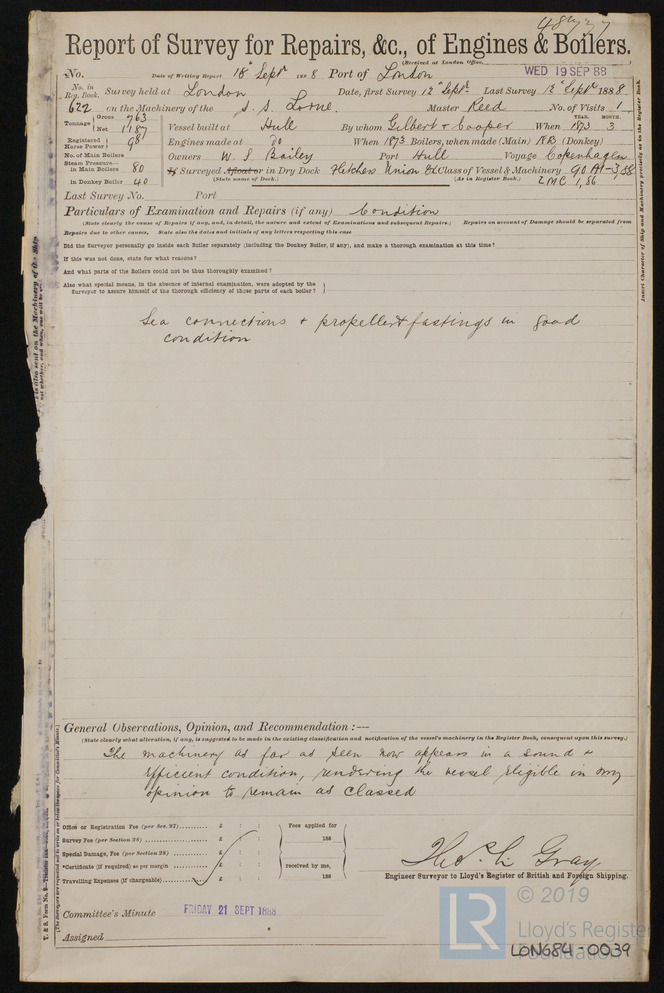 Report of Survey for Repairs, &c., of Engines & Boilers.
(Received at London Office,
No. Date of Writing Report 18th Septr 1888 Port of London WED 19 SEP 88
No. in Reg. Book. Survey held at London Date, first Survey 12th Septr Last Survey 12th Septr 1888
622 on the Machinery of the S. S. Lorne. Master Reed No. of Visits 1
Tonnage Gross 763 Net YEAR. MONTH.
Vessel built at Hull By whom Gilbert & Cooper When 1873 3
Registered Horse Power 98 Engines made at do When 1873 Boilers, when made (Main) (Donkey)
No. of Main Boilers Owners W. S. Bailey Port Hull Voyage Copenhagen
Steam Pressure— in Main Boilers 80 If Surveyed Afloat or in Dry Dock Fletchers Union Class of Vessel & Machinery 90 A1
in Donkey Boiler 40 (State name of Dock.) (As in Register Book.) LMC 1,86
Last Survey No. Port
Particulars of Examination and Repairs (if any) Condition
(State clearly the cause of Repairs if any, and, in detail, the nature and extent of Examinations and subsequent Repairs.) Repairs on account of Damage should be separated from
Repairs due to other causes, State also the dates and initials of any letters respecting this case
Did the Surveyor personally go inside each Boiler separately (including the Donkey Boiler, if any), and make a thorough examination at this time?
If this was not done, state for what reasons?
And what parts of the Boilers could not be thus thoroughly examined?
Also what special means, in the absence of internal examination, were adopted by the
Surveyor to assure himself of the thorough efficiency of those parts of each boiler?
Sea connections & propeller & fastings in good
condition
Insert Character of Ship and Machinery precisely as in the Register Book.
General Observations, Opinion, and Recommendation :—
(State clearly what alteration, if any, is suggested to be made in the existing classification and notification of the vessel's machinery in the Register Book, consequent upon this survey.)
The machinery as far as seen now appears in a sound &
efficient condition, rendering the vessel eligible in my
opinion to remain as classed
Office or Registration Fee (per Sec. 27) £ : : Fees applied for
Survey Fee (per Section 28) £ : : 188
Special Damage, Fee (per Section 28) £ : :
*Certificate (if required) as per margin £ : : received by me,
Travelling Expenses (if chargeable) £ : : 188
Thos. L. Gray
Engineer Surveyor to Lloyd's Register of British and Foreign Shipping.
Committee's Minute FRIDAY 21 SEPT 1888
Assigned
© 2019
LR
Lloyd's Register
Foundation
LON684-0039